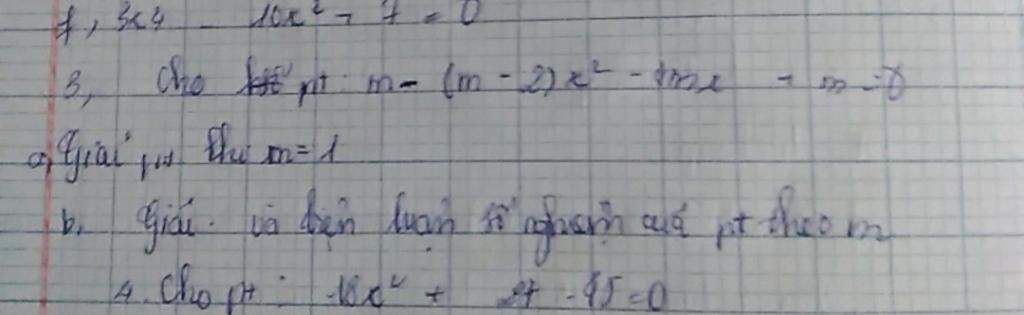 f, 3x4 - 10x² - 7 = 0
3, Cho pt: m - (m - 2)x² - - m = 0
a, Giải pt khi m = 1
b. Giải và biện luận số nghiệm của pt theo m
4. Cho pt: x² + - 45 = 0